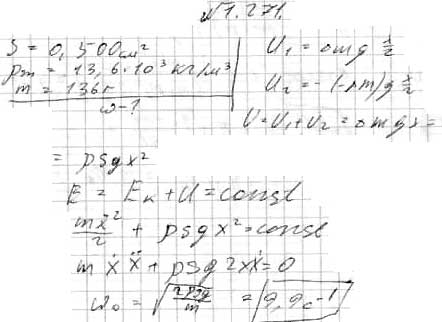 №1.271.
S = 0,500 см²
ρm = 13,6·10³ кг/м³
m = 136 г
ω-?
U₁ = Δmg x/2
U₂ = -(-Δm)g x/2
U = U₁ + U₂ = Δmgx =
= ρSgx²
E = Eк + U = const
mẋ²/2 + ρSgx² = const
mẋẍ + ρSg2xẋ = 0
ω₀ = √(2ρSg/m) = 9,9с⁻¹